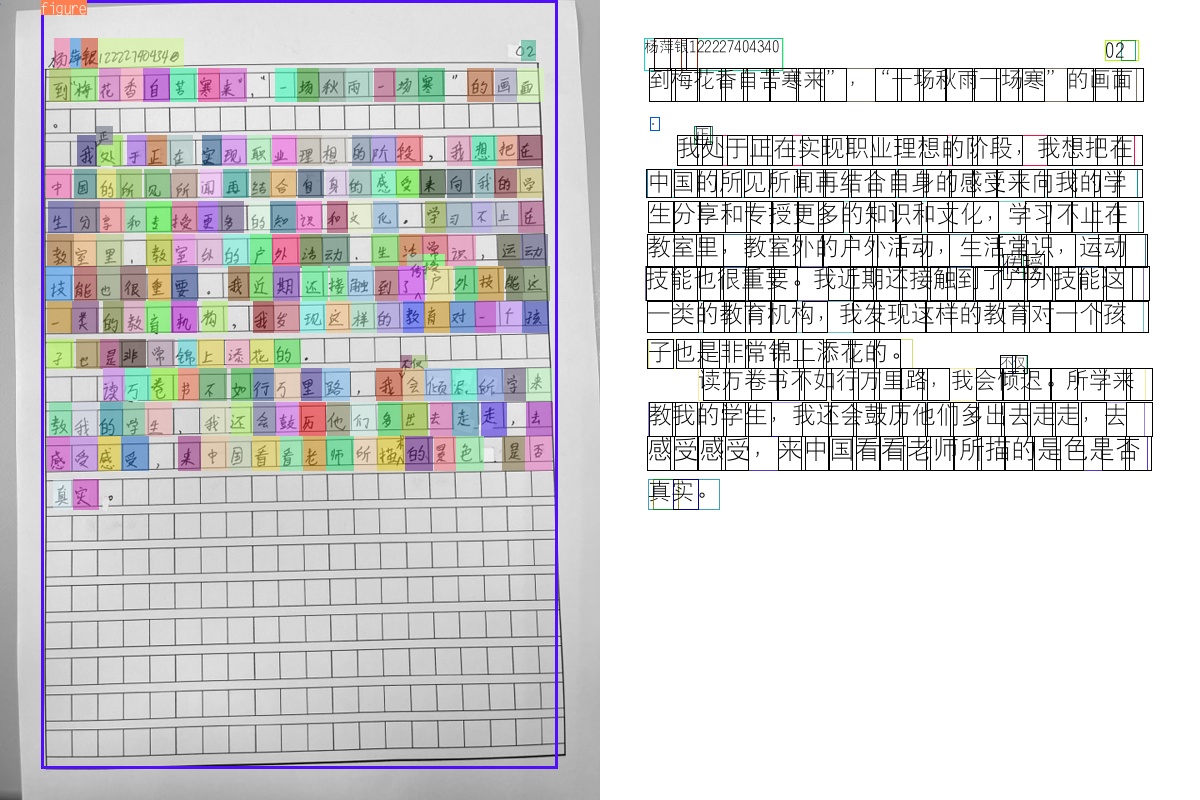 figure
杨萍银122227404340 02
到“梅花香自苦寒来”，“一场秋雨一场寒”的画面
。
正
我处于正在实现职业理想的阶段，我想把在
中国的所见所闻再结合自身的感受来向我的学
生分享和专授更多的知识和文化。学习不止在
教室里，教室外的户外活动，生活常识，运动
技能也很重要。我近期还接触到了户外技能这
一类的教育机构，我发现这样的教育对一个孩
子也是非常锦上添花的。
不仅
读万卷书不如行万里路，我会倾尽所学来
教我的学生，我还会鼓历他们多出去走走，去
感受感受，来中国看看老师所描的景色，是否
真实。
杨萍银122227404340 02
到梅花香自苦寒来”，“十场秋雨一场寒”的画面
正
我处于正在实现职业理想的阶段，我想把在
中国的所见所闻再结合自身的感受来向我的学
生分享和专授更多的知识和文化，学习不止在
教室里，教室外的户外活动，生活常识，运动
技能也很重要。我近期还接触到了户外技能这
一类的教育机构，我发现这样的教育对一个孩
子也是非常锦上添花的。
不仅
读万卷书不如行万里路，我会倾迟。所学来
教我的学生，我还会鼓历他们多出去走走，去
感受感受，来中国看看老师所描的是色是否
真实。